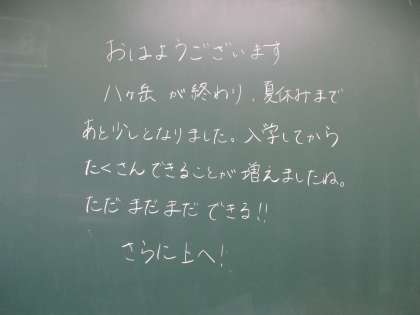 おはようございます
八ヶ岳が終わり、夏休みまで
あと少しとなりました。入学してから
たくさんできることが増えましたね。
ただまだまだできる!!
さらに上へ!